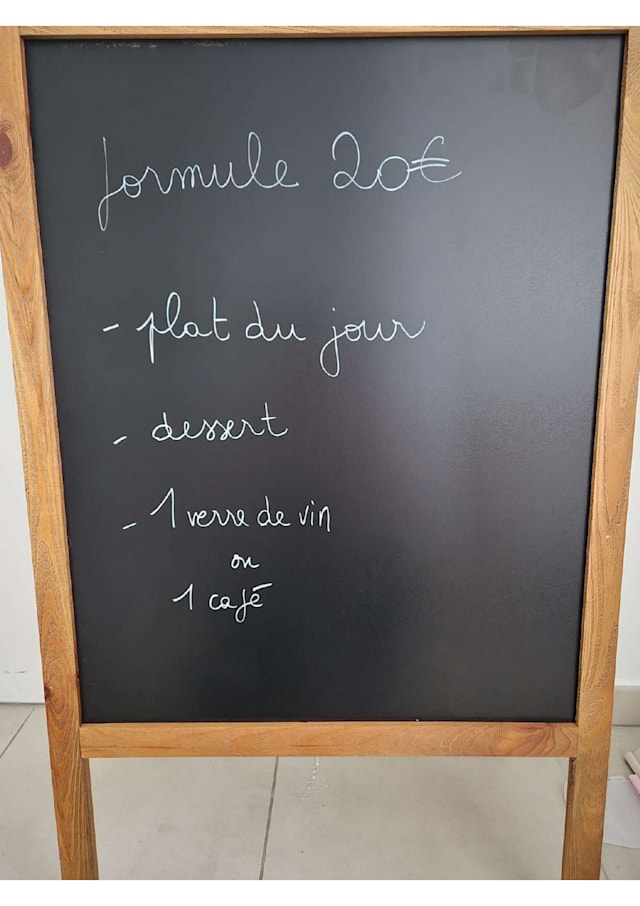 formule 20€
- plat du jour
- dessert
- 1 verre de vin
ou
1 café